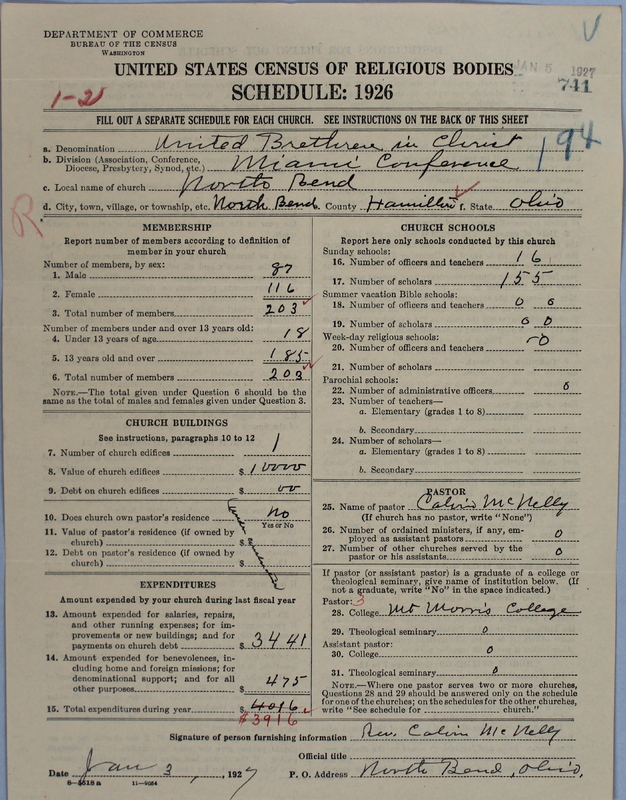 DEPARTMENT OF COMMERCE
BUREAU OF THE CENSUS
WASHINGTON
UNITED STATES CENSUS OF RELIGIOUS BODIES
JAN 5 1927
741
1-2
SCHEDULE: 1926
FILL OUT A SEPARATE SCHEDULE FOR EACH CHURCH. SEE INSTRUCTIONS ON THE BACK OF THIS SHEET
194
a. Denomination United Brethren in Christ
b. Division (Association, Conference, Diocese, Presbytery, Synod, etc.) Miami Conference
c. Local name of church North Bend
d. City, town, village, or township, etc. North Bend e. County Hamilton f. State Ohio
R
MEMBERSHIP
Report number of members according to definition of
member in your church
Number of members, by sex:
1. Male 87
2. Female 116
3. Total number of members 203
Number of members under and over 13 years old:
4. Under 13 years of age 18
5. 13 years old and over 185
6. Total number of members 203
NOTE.—The total given under Question 6 should be
same as the total of males and females given under Question 3.
CHURCH BUILDINGS
See instructions, paragraphs 10 to 12
7. Number of church edifices 1
8. Value of church edifices $ 10000
9. Debt on church edifices $ 00
10. Does church own pastor's residence No
Yes or No
11. Value of pastor's residence (if owned by
church) $
12. Debt on pastor's residence (if owned by
church) $
EXPENDITURES
Amount expended by your church during last fiscal year
13. Amount expended for salaries, repairs,
and other running expenses; for im-
provements or new buildings; and for
payments on church debt $ 3441
14. Amount expended for benevolences, in-
cluding home and foreign missions; for
denominational support; and for all
other purposes $ 475
15. Total expenditures during year $ 4016
$3916
CHURCH SCHOOLS
Report here only schools conducted by this church
Sunday schools:
16. Number of officers and teachers 16
17. Number of scholars 155
Summer vacation Bible schools:
18. Number of officers and teachers 0 0
19. Number of scholars 0 0
Week-day religious schools:
20. Number of officers and teachers 0
21. Number of scholars
Parochial schools:
22. Number of administrative officers 0
23. Number of teachers—
a. Elementary (grades 1 to 8)
b. Secondary
24. Number of scholars—
a. Elementary (grades 1 to 8)
b. Secondary
PASTOR
25. Name of pastor Calvin McNelly
(If church has no pastor, write "None")
26. Number of ordained ministers, if any, em-
ployed as assistant pastors 0
27. Number of other churches served by the
pastor or his assistants 0
If pastor (or assistant pastor) is a graduate of a college or
theological seminary, give name of institution below. (If
not a graduate, write "No" in the space indicated.)
Pastor: 3
28. College Mt Morris College
29. Theological seminary 0
Assistant pastor:
30. College 0
31. Theological seminary 0
NOTE.—Where one pastor serves two or more churches,
Questions 28 and 29 should be answered only on the schedule
for one of the churches; on the schedules for the other churches,
write "See schedule for ______ church."
Signature of person furnishing information Rev. Calvin McNelly
Official title
Date Jan 3, 1927 P. O. Address North Bend, Ohio,
8-5518a 11-9064